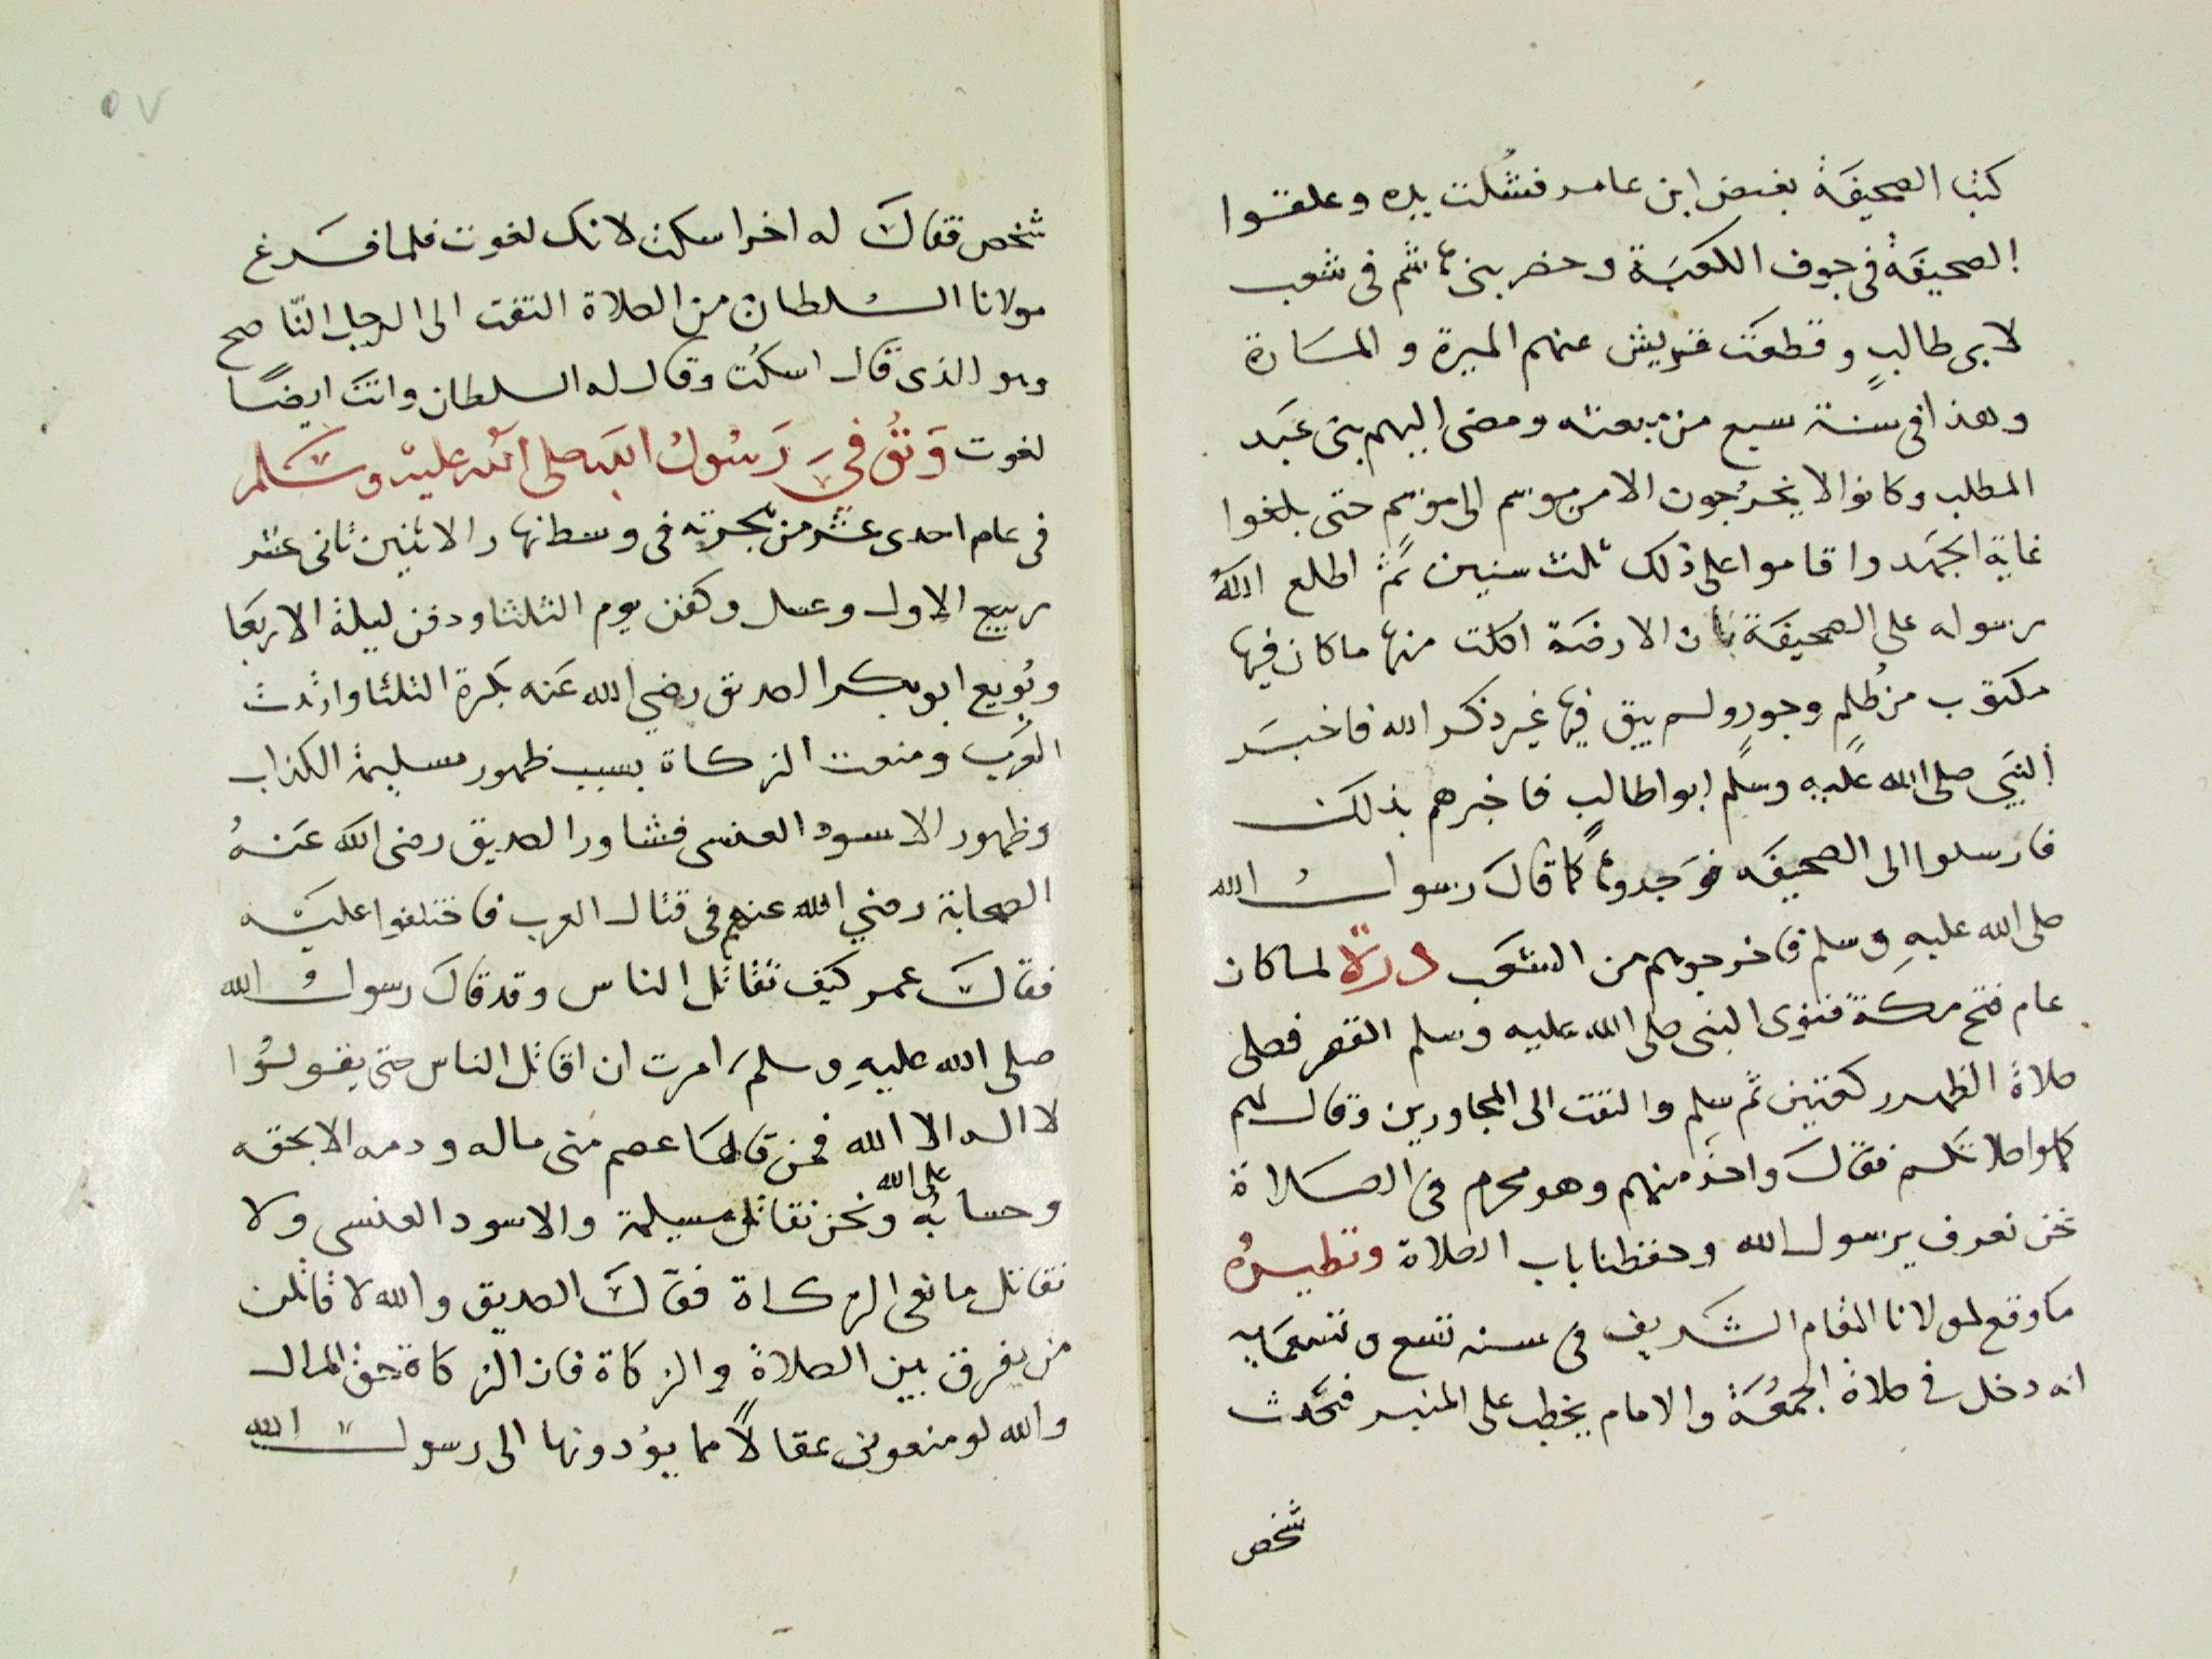 كتب الصحيفة بغيض ابن عامر فشلت يده وعلقوا
الصحيفة في جوف الكعبة وحضر بني هاشم في شعب
لابي طالب وقطعت قريش عنهم الميرة و المسارة
وهذا في سنة سبع من بعثه ومضى اليهم بني عبد
المطلب وكانوا لا يخرجون الا من موسم الى موسم حتى بلغوا
غاية الجهد واقاموا على ذلك ثلث سنين ثم اطلع الله
رسوله على الصحيفة بان الارضة اكلت منها ما كان فيها
مكتوب من ظلم وجور ولم يبق فيها غير ذكر الله فاخبر
النبي صلى الله عليه وسلم ابو اطالب فاخبرهم بذلك
فارسلوا الى الصحيفه فوجدوها كما قال رسول الله
صلى الله عليه وسلم فاخرجوهم من الشعب درة لما كان
عام فتح مكة فنوى النبي صلى الله عليه وسلم القصر فصلى
صلاة الظهر ركعتين ثم سلم والتفت الى المجاورين وقال لهم
كملوا صلاتكم فقال واحد منهم وهو محرم في الصلاة
نحن نعرف يرسول الله وحفظنا باب الصلاة ونظيره
ما وقع لمولانا المقام الشريف في سنه تسع وتسعمايه
انه دخل في صلاة الجمعة والامام يخطب على المنبر فتحدث
شخص
٥٧
شخص فقال له اخر اسكت لانك لغوت فلما فرغ
مولانا السلطان من الصلاة التفت الى الرجل الناصح
وهو الذي قال اسكت وقال له السلطان وانت ايضا
لغوت وتوفي رسول الله صلى الله عليه وسلم
في عام احدى عشر من هجرته في وسط نهار الاثنين ثاني عشر
ربيع الاول وغسل وكفن يوم الثلثا ودفن ليلة الاربعا
وبويع ابو بكر الصديق رضي الله عنه بكرة الثلثا وارتدت
العرب ومنعت الزكاة بسبب ظهور مسليمة الكذاب
وظهور الاسود العنسي فشاور الصديق رضى الله عنه
الصحابة رضي الله عنهم في قتال العرب فاختلفوا عليه
فقال عمر كيف تقاتل الناس وقد قال رسول الله
صلى الله عليه وسلم امرت ان اقاتل الناس حتى يقولوا
لا اله الا الله فمن قالها عصم منى ماله ودمه الا بحقه
وحسابه على الله ونحن نقاتل مسيلمة والاسود العنسى ولا
نقاتل مانعى الزكاة فقال الصديق والله لاقاتلن
من يفرق بين الصلاة والزكاة فان الزكاة حق المال
والله لو منعونى عقالا مما يؤدونها الى رسول الله